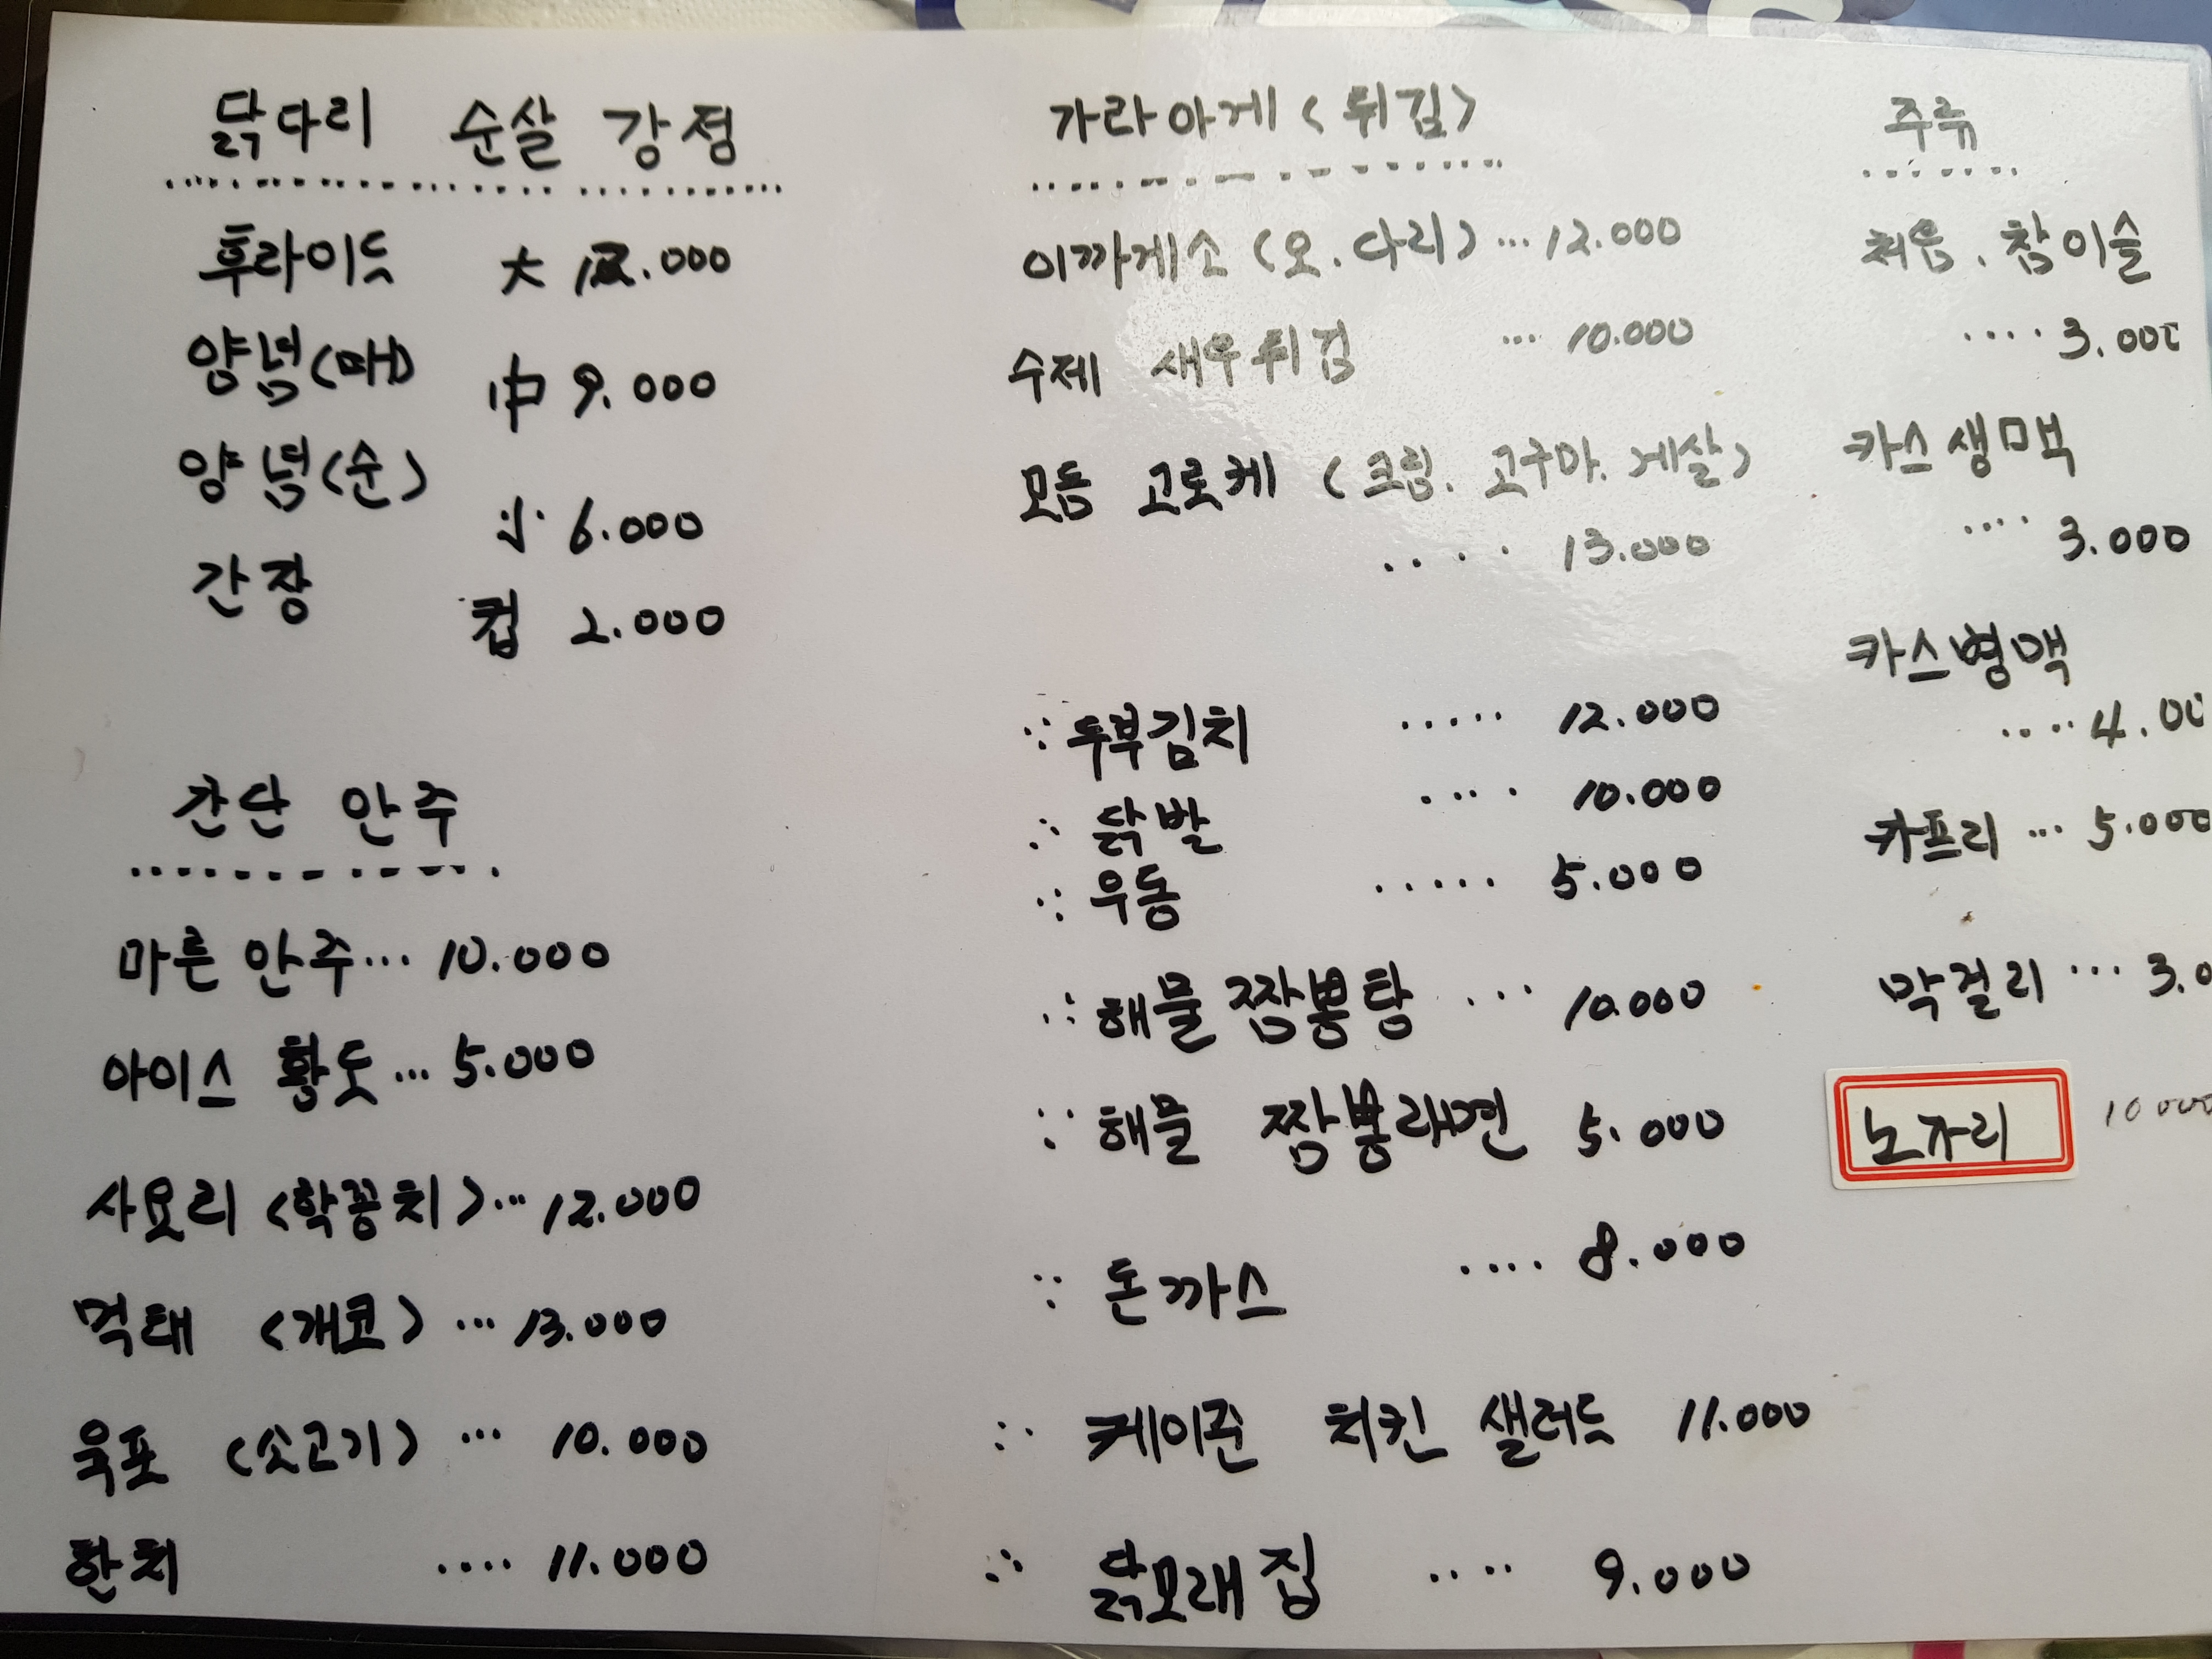 닭다리 순살 강정
후라이드 大 12.000
양념(매) 中 9.000
양념(순) 小 6.000
간장 컵 2.000
간단 안주
마른 안주... 10.000
아이스 황도... 5.000
사요리 <학꽁치>... 12.000
먹태 <개코> ... 13.000
육포 <소고기> ... 10.000
한치 .... 11.000
가라아게 <튀김>
이까게소 (오.다리) ... 12.000
수제 새우튀김 ... 10.000
모듬 고로케 (크림. 고구마. 게살)
.... 13.000
∵ 두부김치 ..... 12.000
∴ 닭발 .... 10.000
∵ 우동 ..... 5.000
∴ 해물짬뽕탕 ... 10.000
∵ 해물 짬뽕라면 5.000
∵ 돈까스 .... 8.000
∴ 케이준 치킨 샐러드 11.000
∴ 닭모래집 .... 9.000
주류
처음. 참이슬
.... 3.000
카스생맥
.... 3.000
카스병맥
.... 4.00
카프리 ... 5.000
막걸리 ... 3.0
노가리 10000